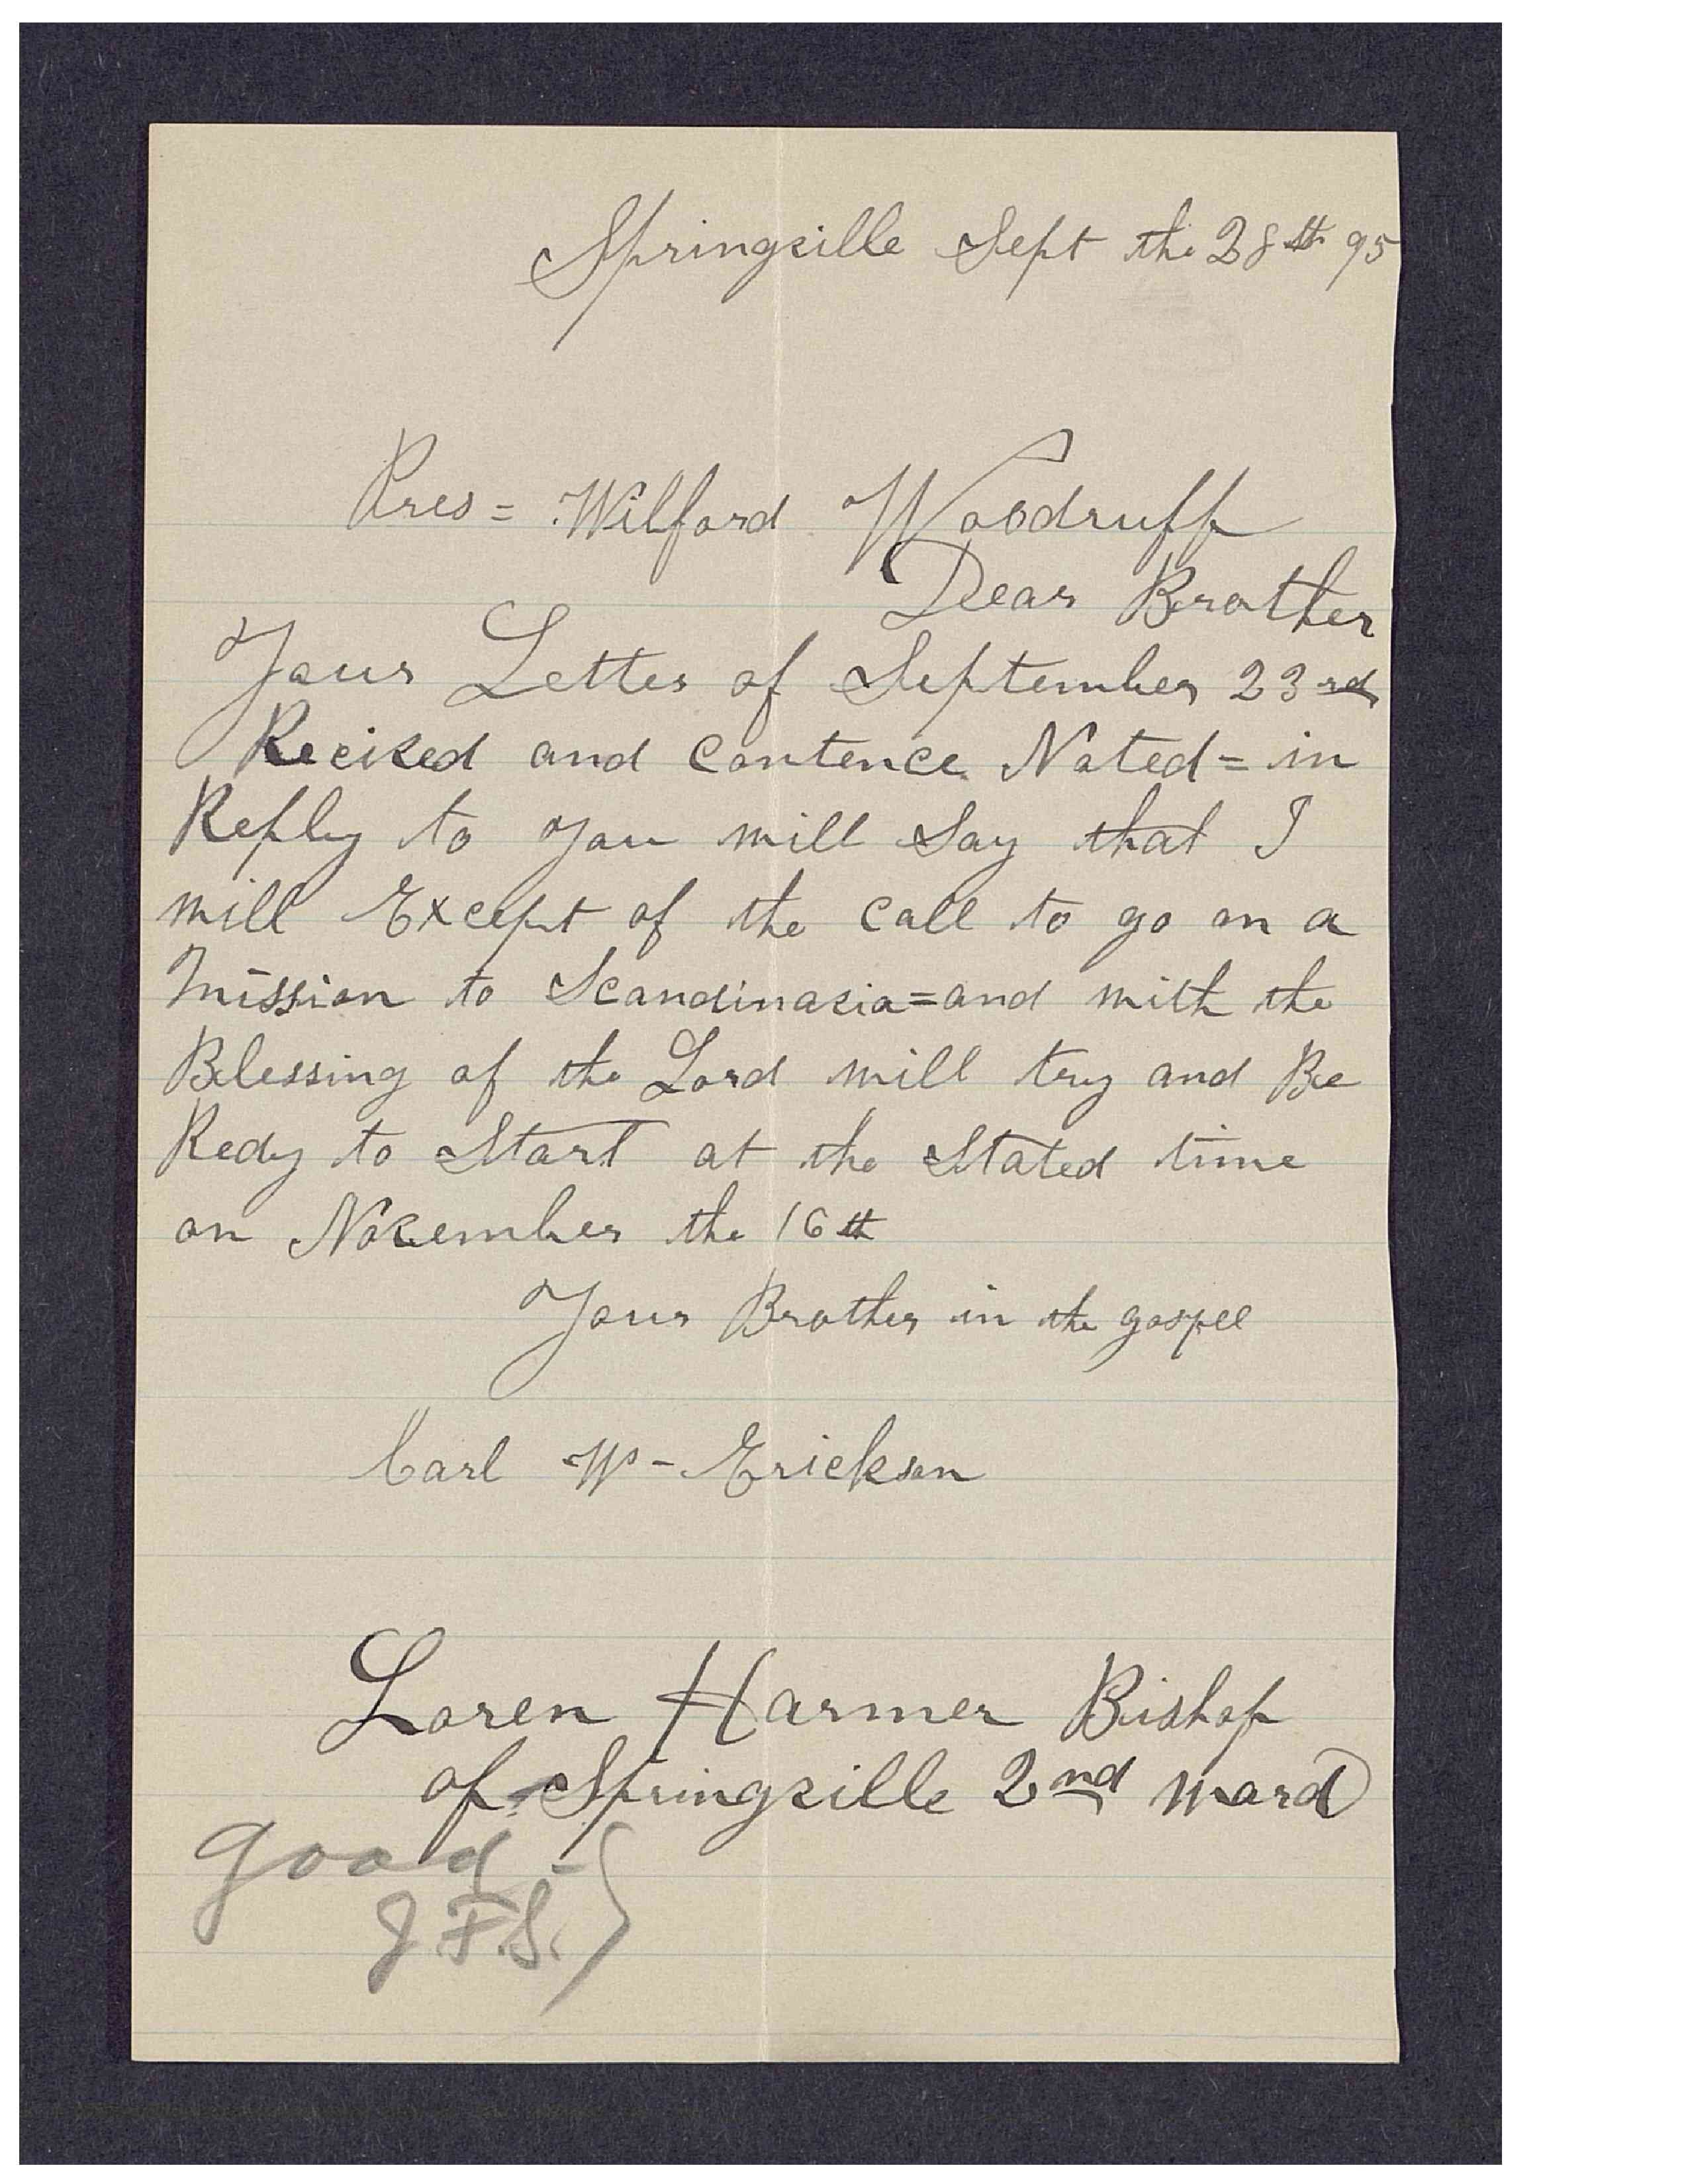 Springville Sept the 28th 95
Pres = Wilford Woodruff
Dear Brother
Your Letter of September 23rd
Recived and contence Noted = in
Reply to you will Say that I
will Except of the call to go on a
Mission to Scandinavia = and with the
Blessing of the Lord will try and Be
Redy to Start at the Stated time
on November the 16th
Your Brother in the gospel
Carl W - Erickson
Loren Harmer Bishop
of Springville 2nd ward
good -
J.F.S.